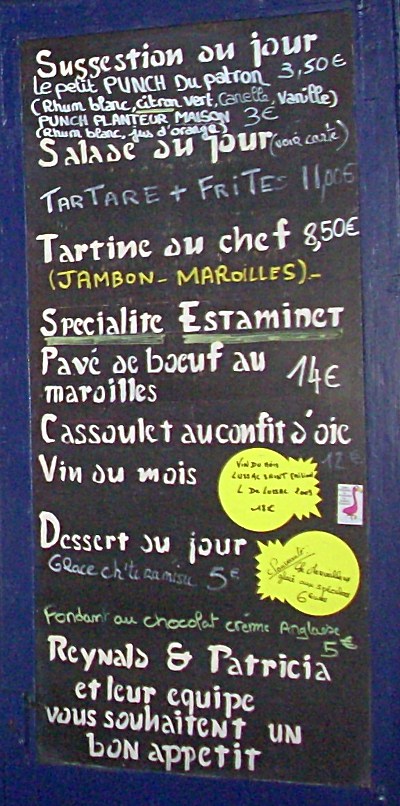 Suggestion du jour
Le petit PUNCH Du patron 3,50€
(Rhum blanc, citron vert, canelle, vanille)
PUNCH PLANTEUR MAISON 3€
(Rhum blanc, jus d'orange)
Salade du jour (voir carte)
TARTARE + FRITES 11,00€
Tartine du chef 8,50€
(JAMBON - MAROILLES)_
Specialite Estaminet
Pavé de boeuf au
maroilles 14€
Cassoulet au confit d'oie
12€
Vin du mois
VIN DU MOIS
LUSSAC SAINT EMILION
L DE LUSSAC 2009
18€
Dessert du jour
Glace ch'tiramisu 5€
6 euros
Fondant au chocolat crème Anglaise
5€
Reynald & Patricia
et leur equipe
vous souhaitent un
bon appetit